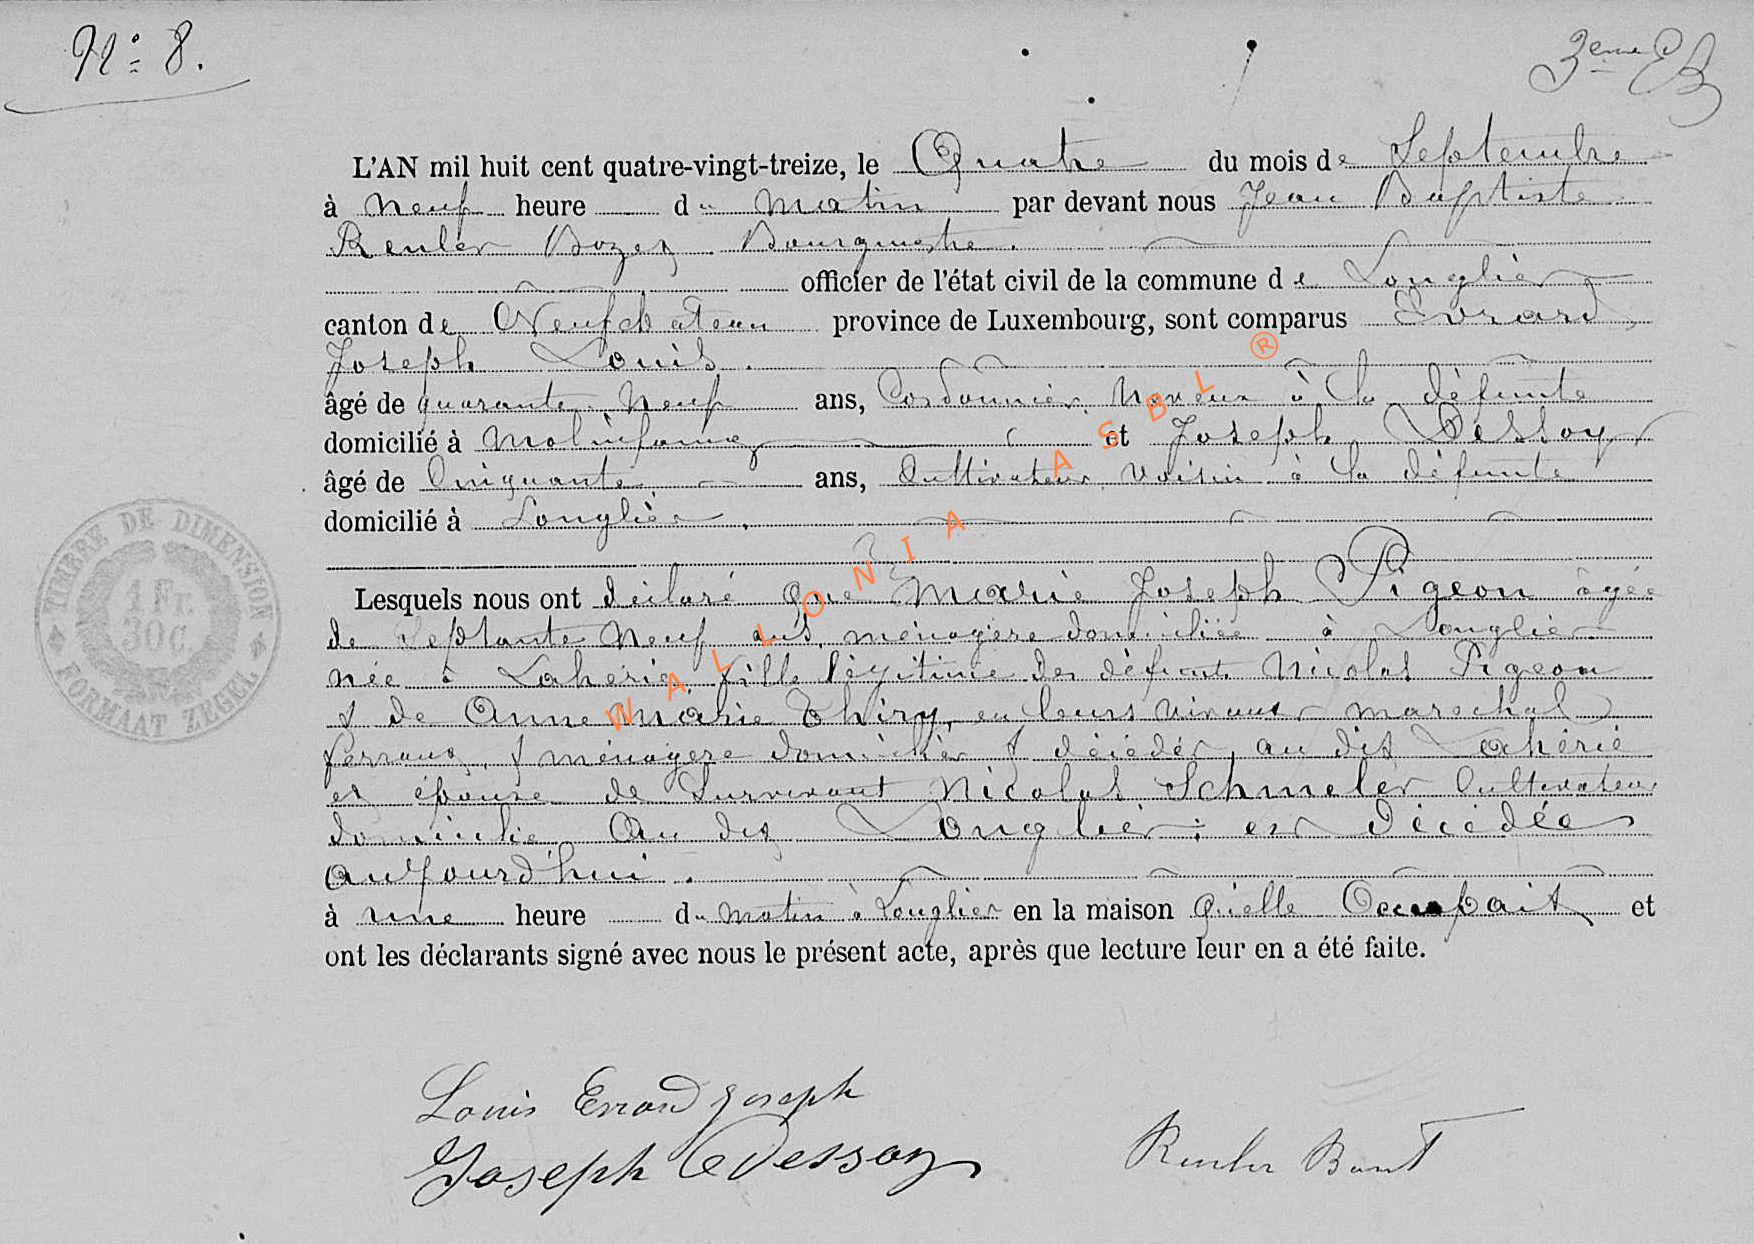 N° 8.
3eme
L'AN mil huit cent quatre-vingt-treize, le Quatre du mois de Septembre
à Neuf heure du Matin par devant nous Jean Baptiste
Reuler Bourgmestre.
officier de l'état civil de la commune de Longlier
canton de Neufchateau province de Luxembourg, sont comparus Evrard,
Joseph Louis.
âgé de quarante Neuf ans, Cordonnier, Neveux à la défunte
domicilié à Molinfaing et Joseph Dessoy
âgé de Cinquante ans, Cultivateur, voisin à la défunte
domicilié à Longlier.
Lesquels nous ont déclaré que Marie Joseph Pigeon âgée
de Septante Neuf ans, ménagère domiciliée à Longlier
née à Lahérie, fille légitime des défunt Nicolas Pigeon
& de Anne Marie Thiry, en leurs vivant marechal
ferrant, & ménagère domiciliés & décédés, au dit Lahérie
et épouse de Survivant Nicolas Schmeler Cultivateur
domicilié Au dit Longlier ; est décédée
aujourd'hui.
à une heure du Matin à Longlier en la maison qu'elle Occupait et
ont les déclarants signé avec nous le présent acte, après que lecture leur en a été faite.
Louis Evrard Joseph
Joseph Dessoy
Reuler
TIMBRE DE DIMENSION
1 Fr.
30 C.
FORMAAT ZEGEL
WALLONIA ASBL ®